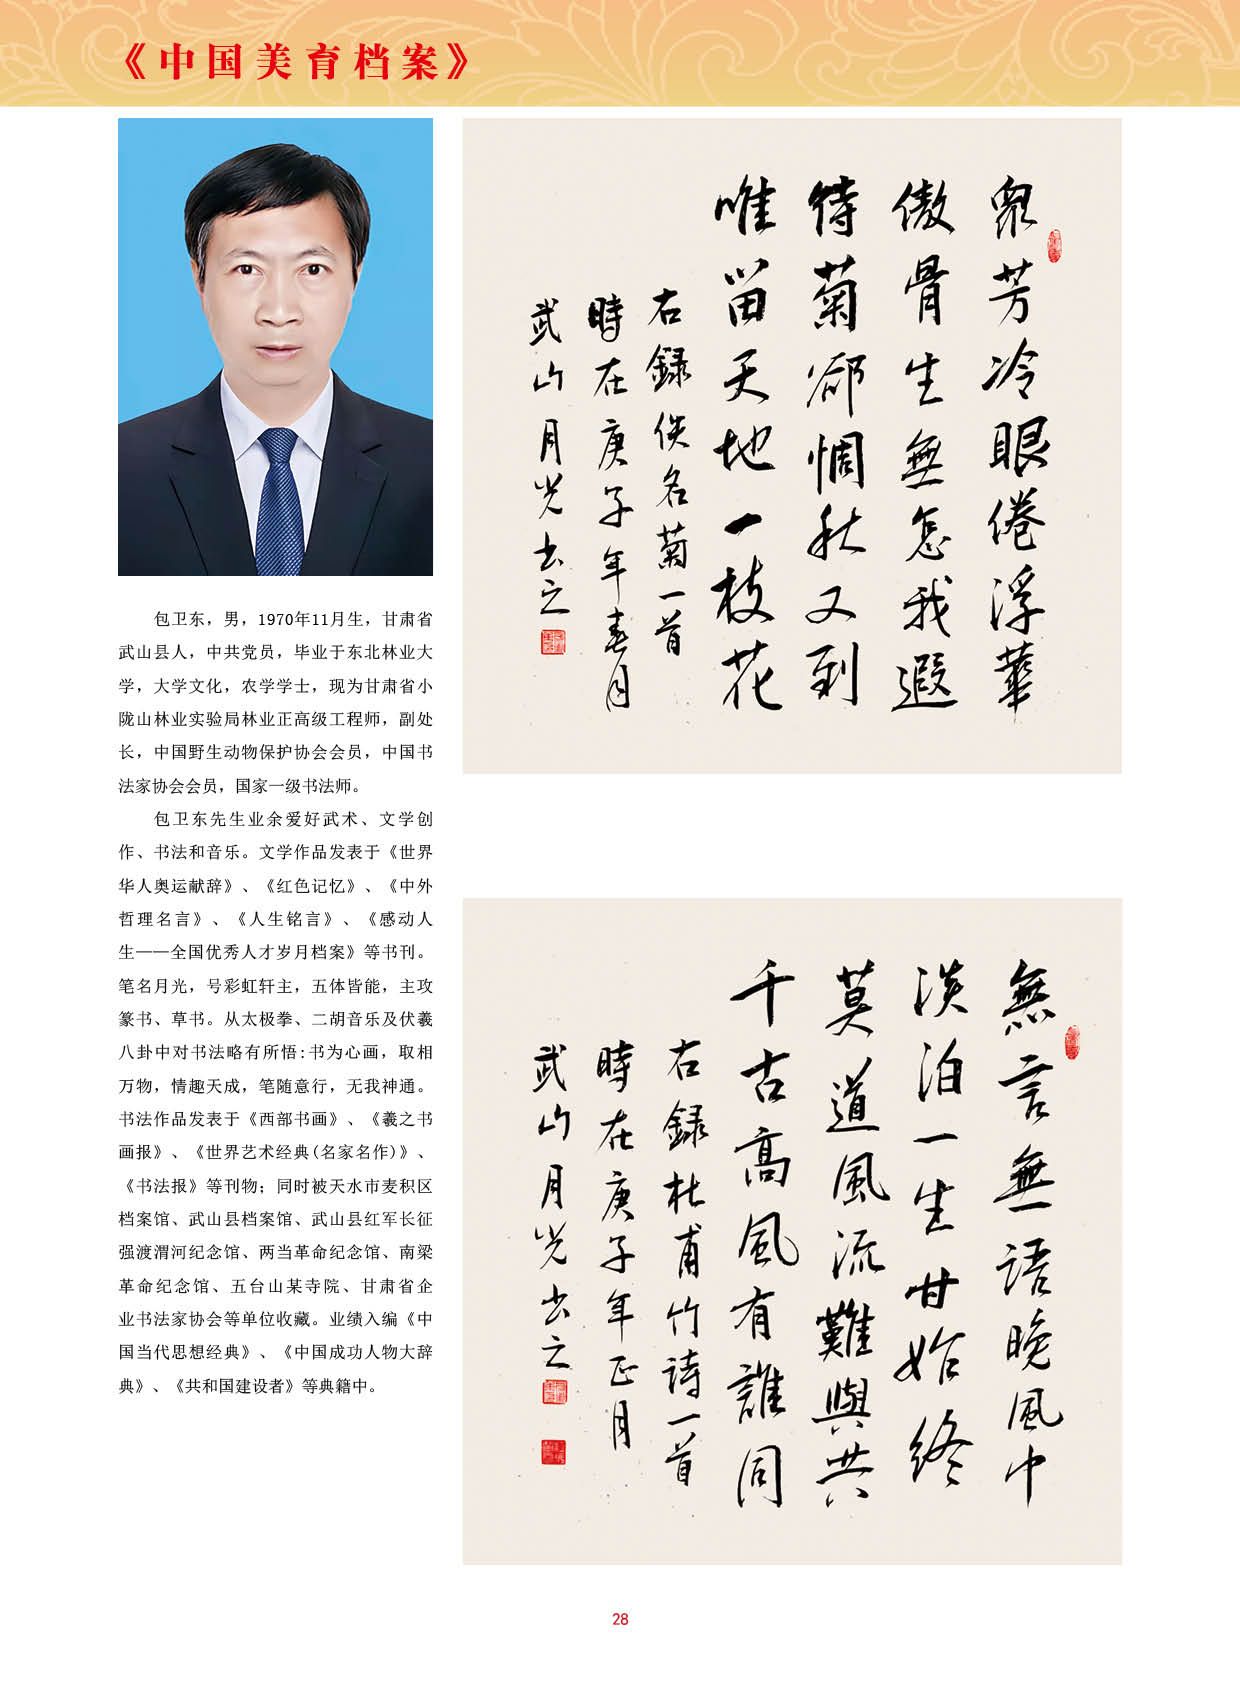 《中国美育档案》
包卫东，男，1970年11月生，甘肃省
武山县人，中共党员，毕业于东北林业大
学，大学文化，农学学士，现为甘肃省小
陇山林业实验局林业正高级工程师，副处
长，中国野生动物保护协会会员，中国书
法家协会会员，国家一级书法师。
包卫东先生业余爱好武术、文学创
作、书法和音乐。文学作品发表于《世界
华人奥运献辞》、《红色记忆》、《中外
哲理名言》、《人生铭言》、《感动人
生——全国优秀人才岁月档案》等书刊。
笔名月光，号彩虹轩主，五体皆能，主攻
篆书、草书。从太极拳、二胡音乐及伏羲
八卦中对书法略有所悟:书为心画，取相
万物，情趣天成，笔随意行，无我神通。
书法作品发表于《西部书画》、《羲之书
画报》、《世界艺术经典(名家名作)》、
《书法报》等刊物；同时被天水市麦积区
档案馆、武山县档案馆、武山县红军长征
强渡渭河纪念馆、两当革命纪念馆、南梁
革命纪念馆、五台山某寺院、甘肃省企
业书法家协会等单位收藏。业绩入编《中
国当代思想经典》、《中国成功人物大辞
典》、《共和国建设者》等典籍中。
眾芳冷眼倦浮華
傲骨生無怎我遐
待菊鄉惆秋又到
唯留天地一枝花
右録佚名菊一首
時在庚子年春月
武山月光书之
無言無語晚風中
淡泊一生甘始終
莫道風流難與共
千古高風有誰同
右録杜甫竹诗一首
時在庚子年正月
武山月光书之
28